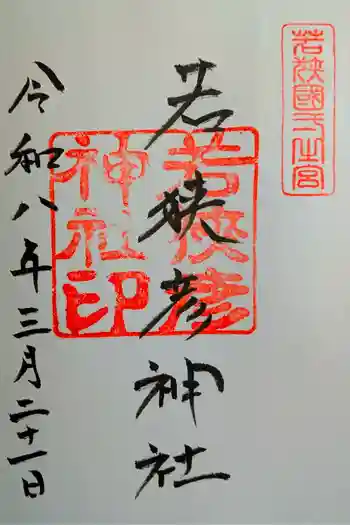 若狹國一之宮
若狭彦神社
若狹彦神社印
令和八年三月二十一日